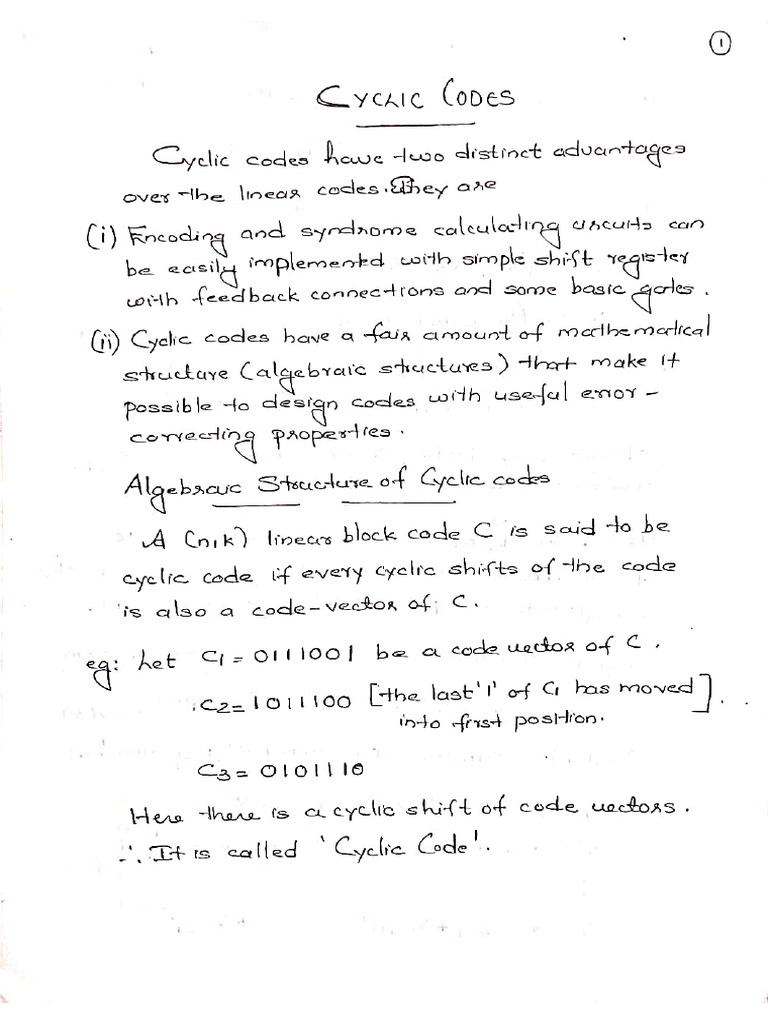 1
CYCLIC CODES
Cyclic codes have two distinct advantages
over the linear codes. They are
(i) Encoding and syndrome calculating circuits can
be easily implemented with simple shift register
with feedback connections and some basic gates.
(ii) Cyclic codes have a fair amount of mathematical
structure (algebraic structures) that make it
possible to design codes with useful error-
correcting properties.
Algebraic Structure of Cyclic codes
A (n,k) linear block code C is said to be
cyclic code if every cyclic shifts of the code
is also a code-vector of C.
eg: Let C1 = 0111001 be a code vector of C.
C2 = 1011100 [the last '1' of C1 has moved
into first position.]
C3 = 0101110
Here there is a cyclic shift of code vectors.
∴ It is called 'Cyclic Code'.